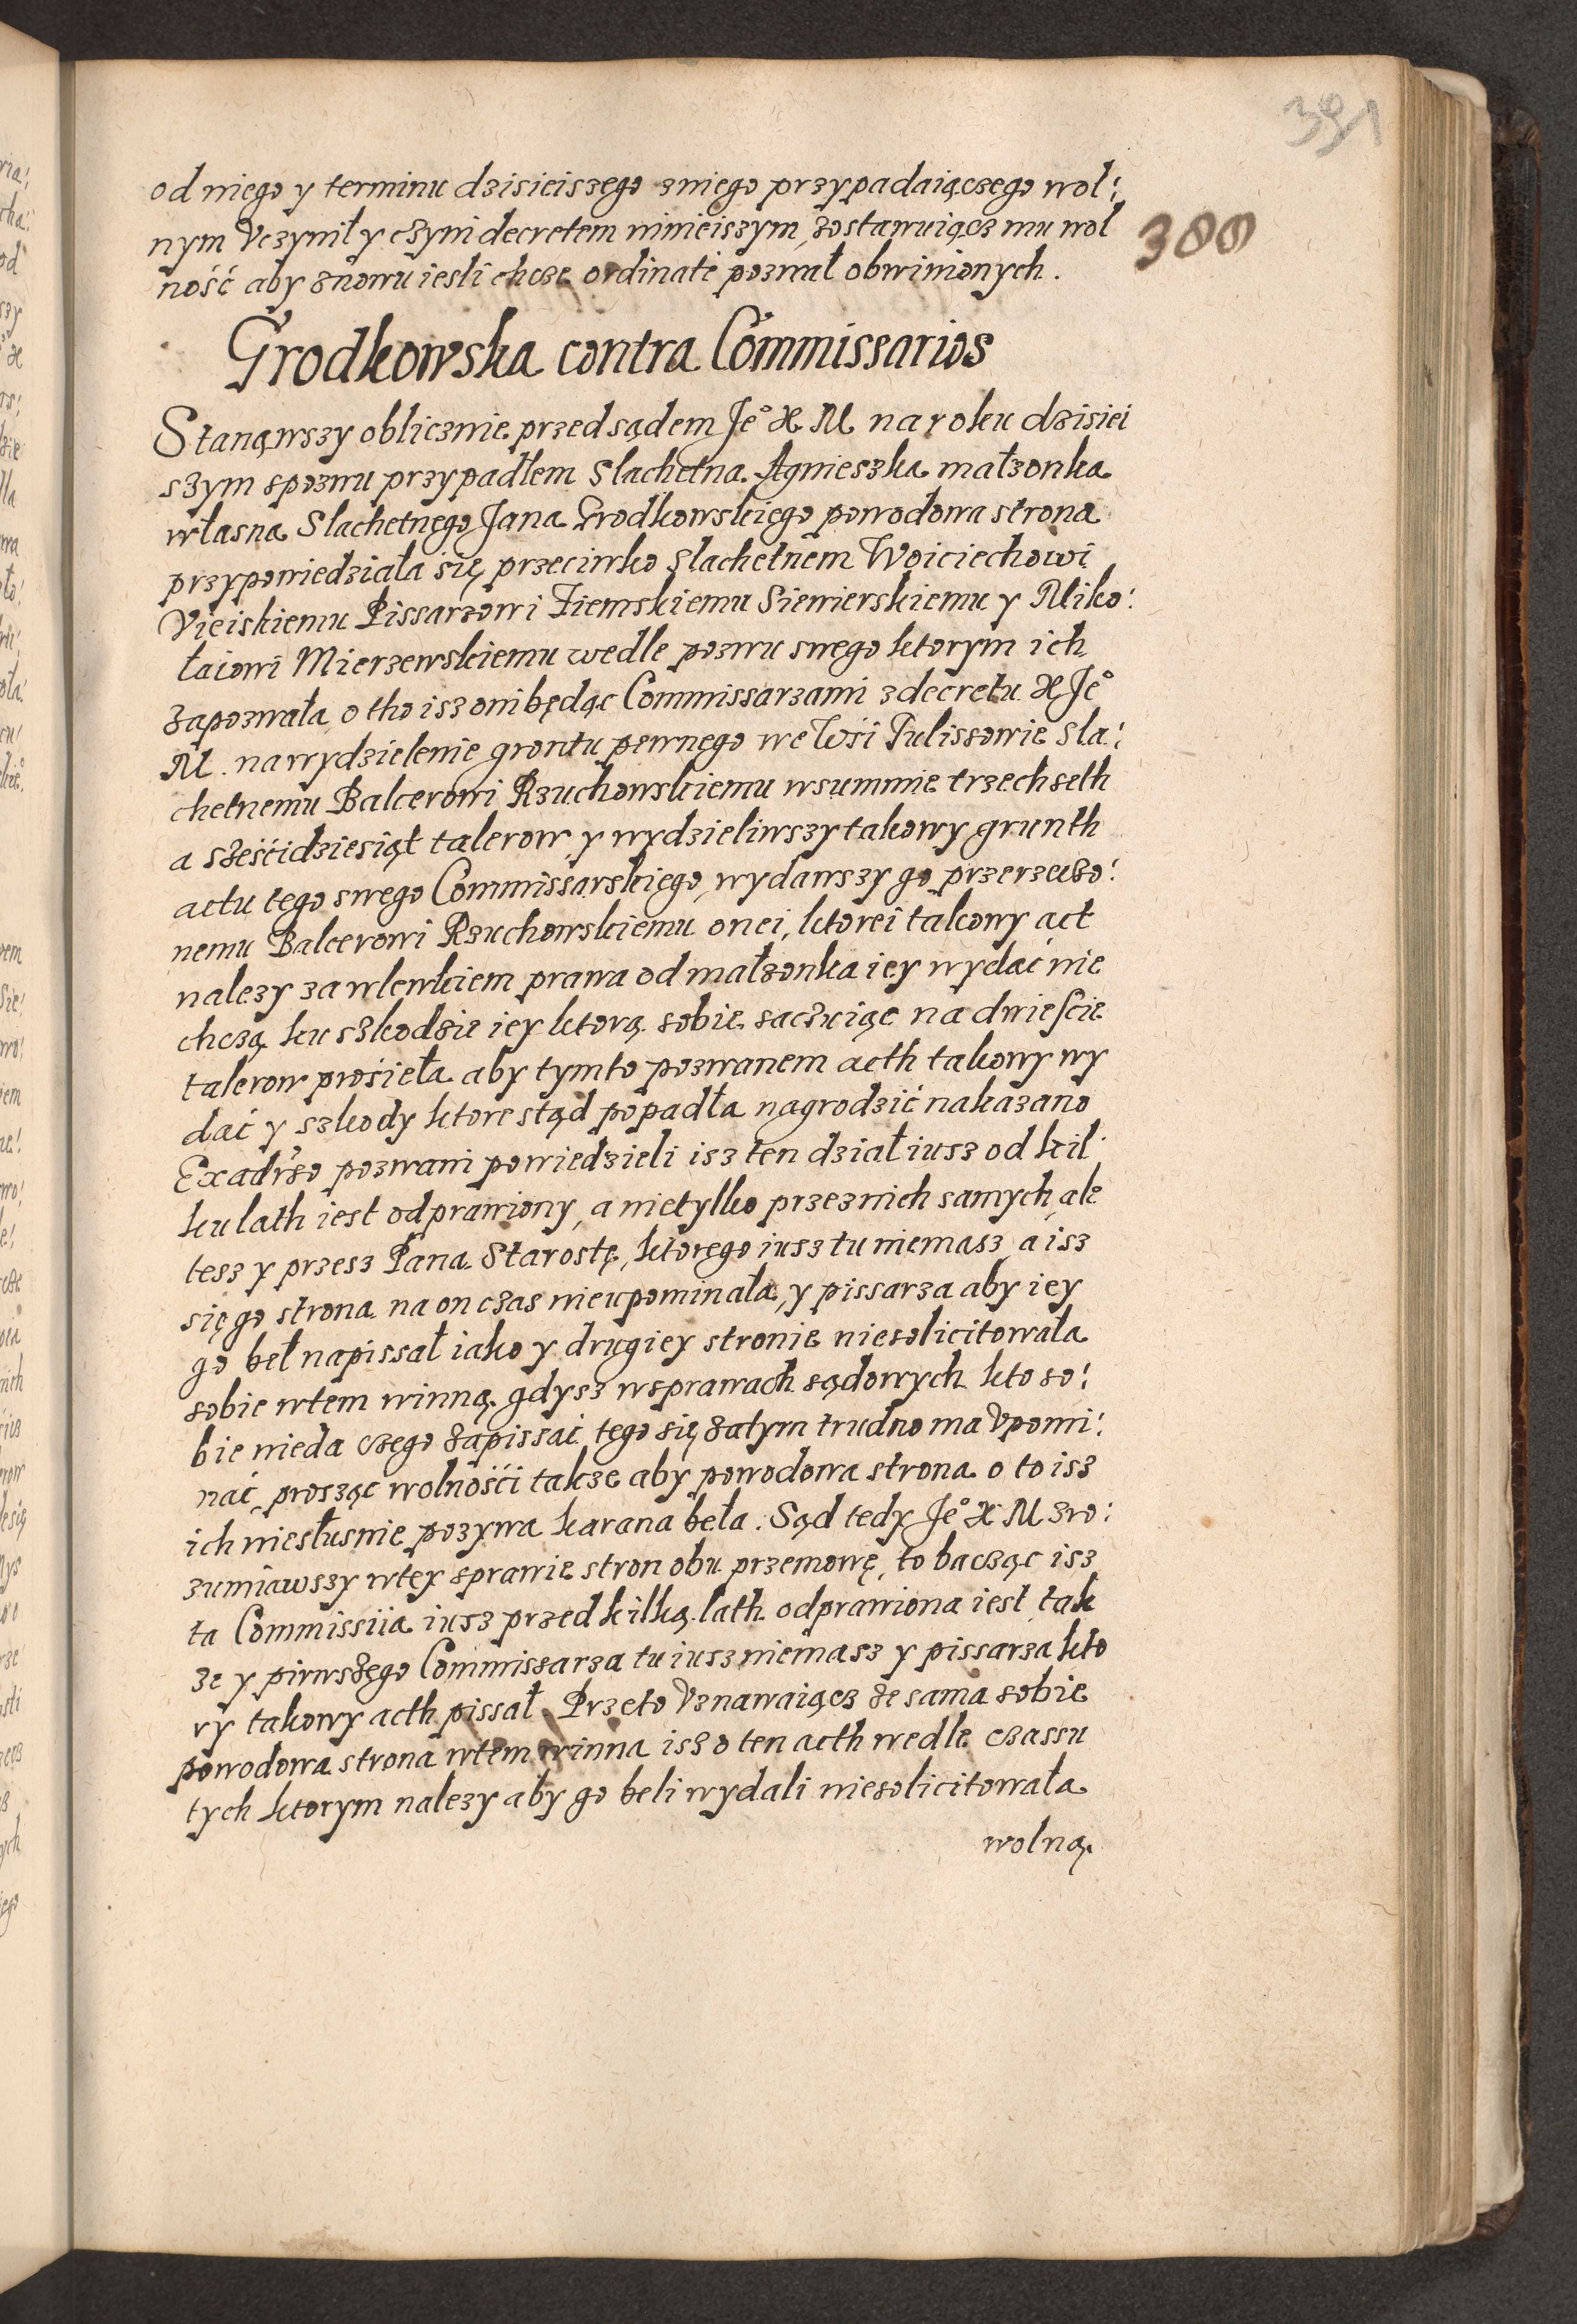 391
od niego y terminu dzisieiszego zniego przypadaiączego wol:
nym Vczynił y czyni decretem ninieiszym, zostawuiącz mu wol
380
ność aby znowu iesli chcze ordinatè pozwał obwinionych.
Grodkowska contra Commissarios
Stanąwszy oblicznie przed sądem Je° X M na roku dzisiei
szym spozwu przypadłem Slachetna Agnieszka małzonka
własna Slachetnego Jana Grodkowskiego powodowa strona
przypowiedziała się przeciwko Slachetnem Woiciechowi
Vieiskiemu Pissarzowi Ziemskiemu Siewierskiemu y Miko:
łaiowi Mierzewskiemu wedle pozwu swego ktorym ich
zapozwała o tho isz oni będąc Commissarzami zdecretu X Je°
M. na wydzielenie grontu pewnego we Wśi Tulissowie Sla:
chetnemu Balcerowi Rzuchowskiemu wsummie trzech seth
a sześćidziesiąt talerow y wydzieliwszy takowy grunth
actu tego swego Commissarskiego wydawszy go przerzeczo:
nemu Balcerowi Rzuchowskiemu onei, ktorei takowy act
nalezy za wlewkiem prawa od małzonka iey wydać nie
chczą ku szkodzie iey ktorą sobie saczuiąc na dwieście
talerow prosieła aby tymto pozwanem acth takowy wy
dać y szkody ktore stąd popadła nagrodzić nakazano
Exadrso pozwani powiedzieli isz ten dział iusz od kil
ku lath iest odprawiony, a nietylko przeznich samych, ale
tesz y przesz Pana Starostę, ktorego iusz tu niemasz, a isz
się go strona na on czas nieupominała, y pissarza aby iey
go beł napissał iako y drugiey stronie niesolicitowała
sobie wtem winną, gdysz wsprawach sądowych kto so:
bie nieda czego zapissać tego się zatym trudno ma Vpomi:
nać, prosząc wolnośći takze aby powodowa strona o to isz
ich niesłusnie pozywa karana beła. Sąd tedy Je° X M zro:
zumiawszy wtey sprawie stron obu przemowę, to bacząc isz
ta Commissiia iusz przed kilką lath odprawiona iest, tak
ze y pirwszego Commissarza tu iusz niemasz y pissarza kto
ry takowy acth pissał. Przeto Vznawaiącz ze sama sobie
powodowa strona wtem winna isz o ten acth wedle czassu
tych ktorym nalezy aby go beli wydali niesolicitowała
wolną